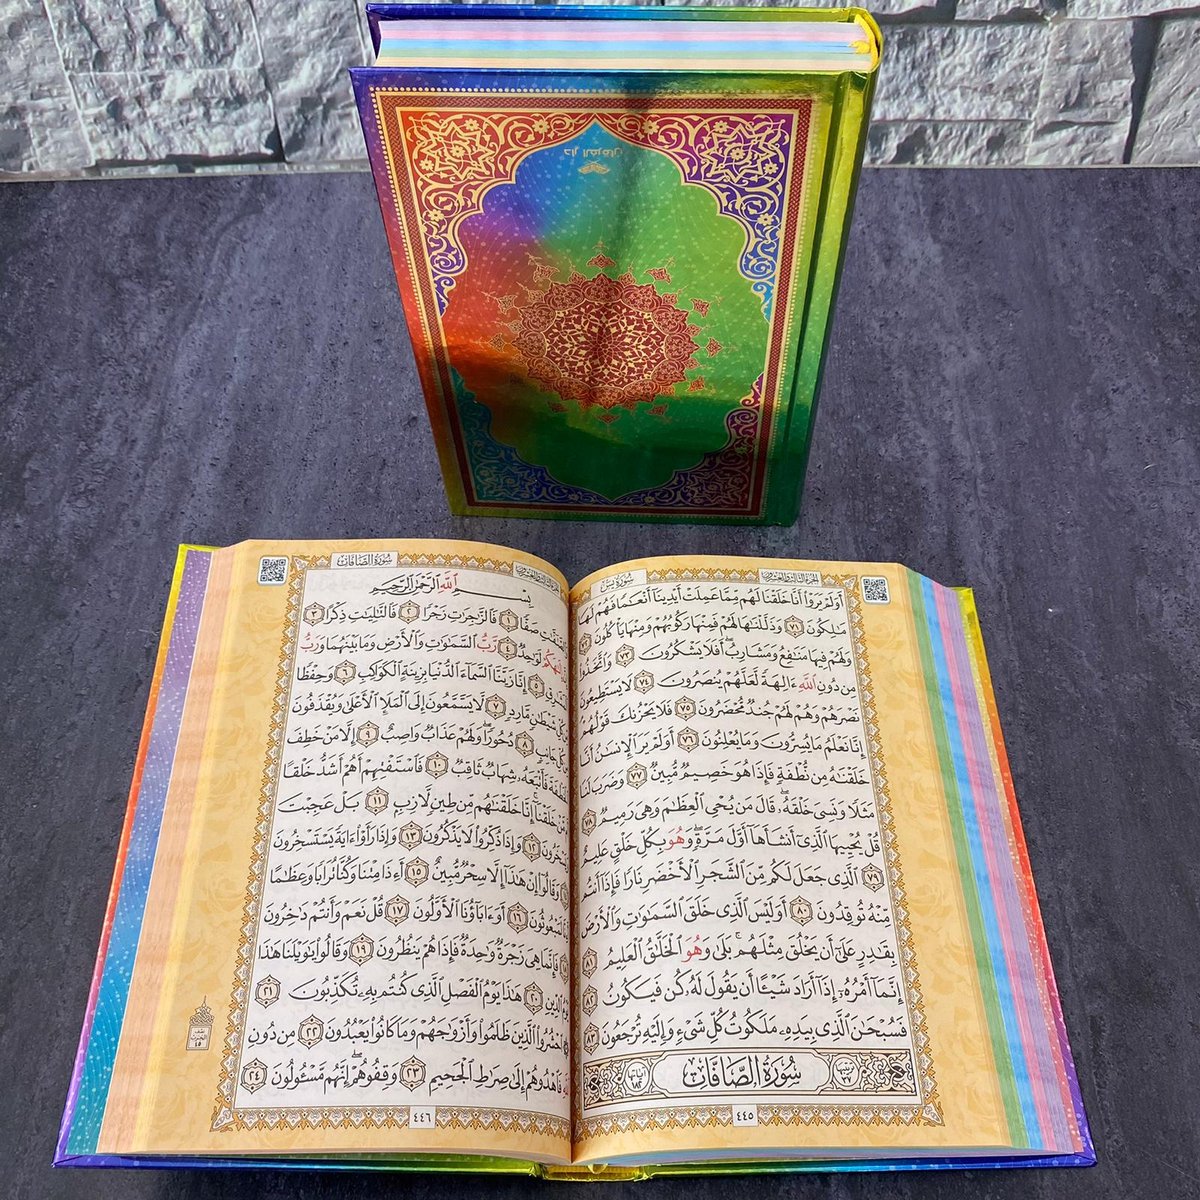 دار الفرقان
الجزء الثالث والعشرون
سُورَةُ يسٓ
أَوَلَمْ يَرَوْا۟ أَنَّا خَلَقْنَا لَهُم مِّمَّا عَمِلَتْ أَيْدِينَآ أَنْعَـٰمًا فَهُمْ لَهَا
مَـٰلِكُونَ ٧١ وَذَلَّلْنَـٰهَا لَهُمْ فَمِنْهَا رَكُوبُهُمْ وَمِنْهَا يَأْكُلُونَ ٧٢
وَلَهُمْ فِيهَا مَنَـٰفِعُ وَمَشَارِبُ ۖ أَفَلَا يَشْكُرُونَ ٧٣ وَٱتَّخَذُوا۟
مِن دُونِ ٱللَّهِ ءَالِهَةً لَّعَلَّهُمْ يُنصَرُونَ ٧٤ لَا يَسْتَطِيعُونَ
نَصْرَهُمْ وَهُمْ لَهُمْ جُندٌ مُّحْضَرُونَ ٧٥ فَلَا يَحْزُنكَ قَوْلُهُمْ ۘ
إِنَّا نَعْلَمُ مَا يُسِرُّونَ وَمَا يُعْلِنُونَ ٧٦ أَوَلَمْ يَرَ ٱلْإِنسَـٰنُ أَنَّا
خَلَقْنَـٰهُ مِن نُّطْفَةٍ فَإِذَا هُوَ خَصِيمٌ مُّبِينٌ ٧٧ وَضَرَبَ لَنَا
مَثَلًا وَنَسِىَ خَلْقَهُۥ ۖ قَالَ مَن يُحْىِ ٱلْعِظَـٰمَ وَهِىَ رَمِيمٌ ٧٨
قُلْ يُحْيِيهَا ٱلَّذِىٓ أَنشَأَهَآ أَوَّلَ مَرَّةٍ ۖ وَهُوَ بِكُلِّ خَلْقٍ عَلِيمٌ
٧٩ ٱلَّذِى جَعَلَ لَكُم مِّنَ ٱلشَّجَرِ ٱلْأَخْضَرِ نَارًا فَإِذَآ أَنتُم
مِّنْهُ تُوقِدُونَ ٨٠ أَوَلَيْسَ ٱلَّذِى خَلَقَ ٱلسَّمَـٰوَٰتِ وَٱلْأَرْضَ
بِقَـٰدِرٍ عَلَىٰٓ أَن يَخْلُقَ مِثْلَهُم ۚ بَلَىٰ وَهُوَ ٱلْخَلَّـٰقُ ٱلْعَلِيمُ ٨١
إِنَّمَآ أَمْرُهُۥٓ إِذَآ أَرَادَ شَيْـًٔا أَن يَقُولَ لَهُۥ كُن فَيَكُونُ ٨٢
فَسُبْحَـٰنَ ٱلَّذِى بِيَدِهِۦ مَلَكُوتُ كُلِّ شَىْءٍ وَإِلَيْهِ تُرْجَعُونَ ٨٣
سُورَةُ الصَّافَّاتِ
٤٤٥
الجزء الثالث والعشرون
سُورَةُ الصَّافَّاتِ
بِسْمِ ٱللَّهِ ٱلرَّحْمَـٰنِ ٱلرَّحِيمِ
صَفًّا ١ فَٱلزَّٰجِرَٰتِ زَجْرًا ٢ فَٱلتَّـٰلِيَـٰتِ ذِكْرًا ٣
إِلَـٰهَكُمْ لَوَٰحِدٌ ٤ رَّبُّ ٱلسَّمَـٰوَٰتِ وَٱلْأَرْضِ وَمَا بَيْنَهُمَا وَرَبُّ
ٱلْمَشَـٰرِقِ ٥ إِنَّا زَيَّنَّا ٱلسَّمَآءَ ٱلدُّنْيَا بِزِينَةٍ ٱلْكَوَاكِبِ ٦ وَحِفْظًا
مِّن كُلِّ شَيْطَـٰنٍ مَّارِدٍ ٧ لَّا يَسَّمَّعُونَ إِلَى ٱلْمَلَإِ ٱلْأَعْلَىٰ وَيُقْذَفُونَ
مِن كُلِّ جَانِبٍ ٨ دُحُورًا ۖ وَلَهُمْ عَذَابٌ وَاصِبٌ ٩ إِلَّا مَنْ خَطِفَ
ٱلْخَطْفَةَ فَأَتْبَعَهُۥ شِهَابٌ ثَاقِبٌ ١٠ فَٱسْتَفْتِهِمْ أَهُمْ أَشَدُّ خَلْقًا
أَم مَّنْ خَلَقْنَآ ۚ إِنَّا خَلَقْنَـٰهُم مِّن طِينٍ لَّازِبٍ ١١ بَلْ عَجِبْتَ
وَيَسْخَرُونَ ١٢ وَإِذَا ذُكِّرُوا۟ لَا يَذْكُرُونَ ١٣ وَإِذَا رَأَوْا۟ ءَايَةً يَسْتَسْخِرُونَ
١٤ وَقَالُوٓا۟ إِنْ هَـٰذَآ إِلَّا سِحْرٌ مُّبِينٌ ١٥ أَءِذَا مِتْنَا وَكُنَّا تُرَابًا وَعِظَـٰمًا
أَءِنَّا لَمَبْعُوثُونَ ١٦ أَوَءَابَآؤُنَا ٱلْأَوَّلُونَ ١٧ قُلْ نَعَمْ وَأَنتُمْ دَٰخِرُونَ
١٨ فَإِنَّمَا هِىَ زَجْرَةٌ وَٰحِدَةٌ فَإِذَا هُمْ يَنظُرُونَ ١٩ وَقَالُوا۟ يَـٰوَيْلَنَا هَـٰذَا
يَوْمُ ٱلدِّينِ ٢٠ هَـٰذَا يَوْمُ ٱلْفَصْلِ ٱلَّذِى كُنتُم بِهِۦ تُكَذِّبُونَ ٢١
ٱحْشُرُوا۟ ٱلَّذِينَ ظَلَمُوا۟ وَأَزْوَٰجَهُمْ وَمَا كَانُوا۟ يَعْبُدُونَ ٢٢ مِن دُونِ
ٱللَّهِ فَٱهْدُوهُمْ إِلَىٰ صِرَٰطِ ٱلْجَحِيمِ ٢٣ وَقِفُوهُمْ ۖ إِنَّهُم مَّسْـُٔولُونَ ٢٤
٤٤٦